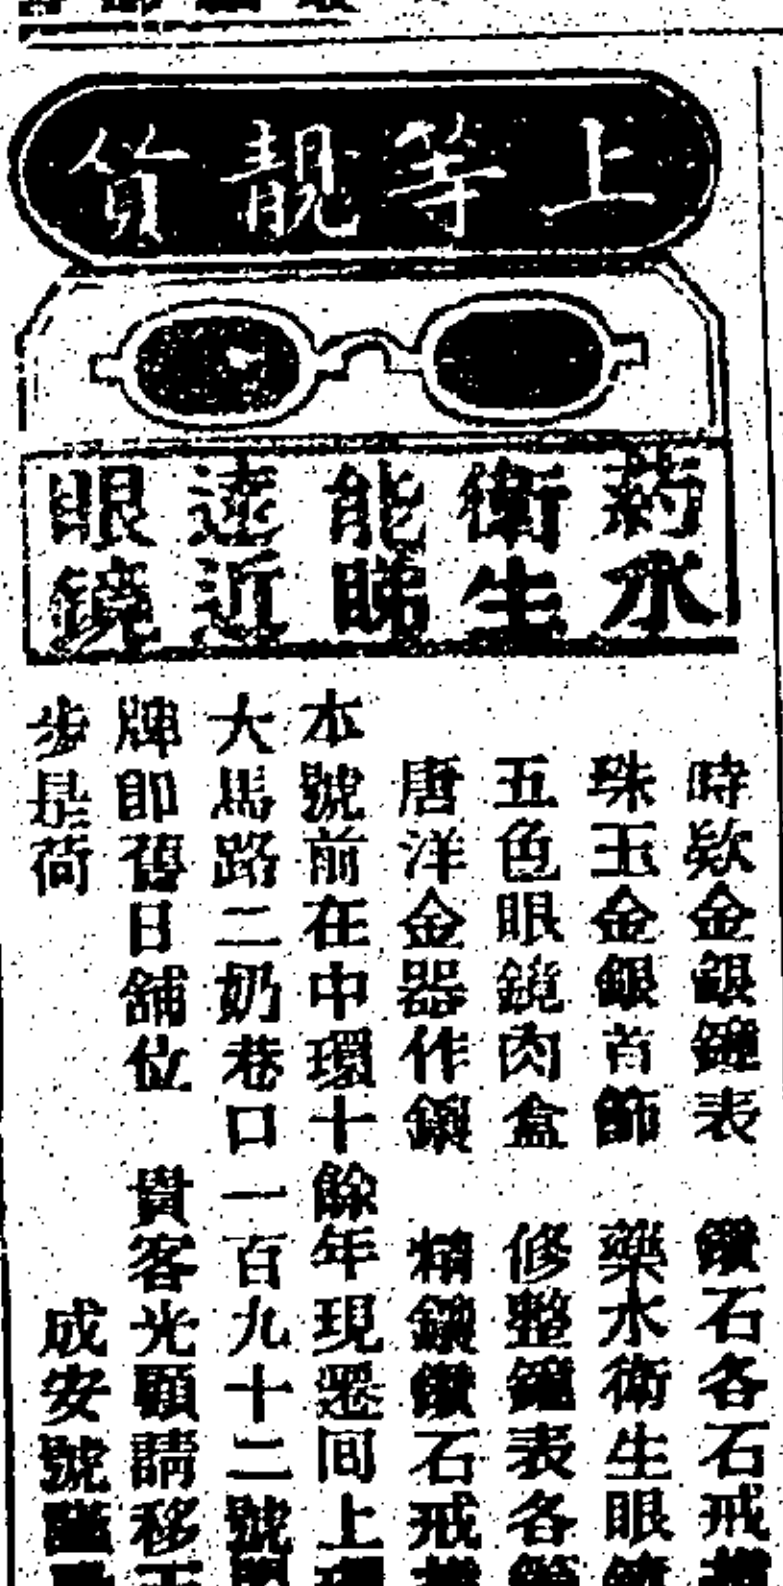 上等靚質
藥水
衛生
能睇
遠近
眼鏡
時欵金銀鐘表　鑽石各石戒
珠玉金銀首飾　藥水衛生眼鏡
五色眼鏡肉盒　修整鐘表各
唐洋金器作鑲　精鑲鑽石戒
本號前在中環十餘年現遷回上環
大馬路二奶巷口一百九十二號門
牌即舊日舖位　貴客光顧請移玉
步是荷
成安號